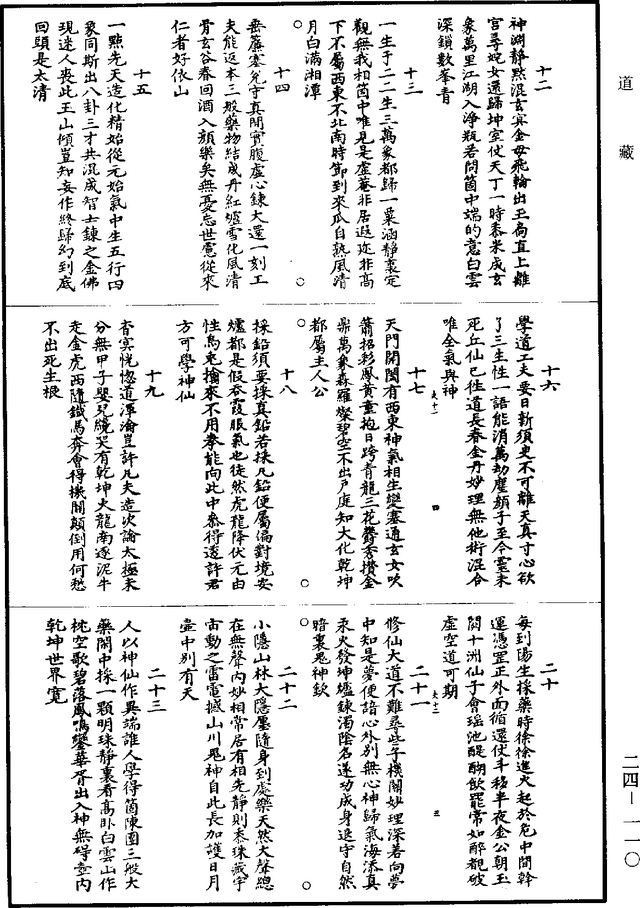 道藏
十二
神淵靜默混玄冥金母飛輪出玉扃直上離
宮尋姹女還歸坤室伏天丁一時黍米成玄
象萬里江湖入淨瓶若問箇中端的意白雲
深鎖數峯青
十三
一生于二二生三萬象都歸一粟涵靜裏定
觀無我相箇中唯見是虛菴非居遐迩非高
下不屬西東不北南時節到來瓜自熟風清
月白滿湘潭
十四
垂簾塞兑守真閑實腹虛心鍊大還一刻工
夫能返本三般藥物結成丹紅爐雪化風清
骨玄谷春回酒入顏樂矣無憂忘世慮從來
仁者好依山
十五
一點先天造化精始從元始氣中生五行四
象同斯出八卦三才共混成智士鍊之金佛
現迷人喪此玉山傾豈知妄作終歸幻到底
回頭是太清
十六
學道工夫要日新須臾不可離天真寸心欲
了三生性一語能消萬劫塵顏子至今靈未
死丘仙已往道長春金丹妙理無他術混合
唯全氣與神
十七
天門開闔有西東神氣相生變塞通玄女吹
簫招彩鳳黃童抱日跨青龍三花鬱秀攢金
鼎萬象森羅燦碧空不出戶庭知大化乾坤
都屬主人公
十八
採鉛須要採真鉛若採凡鉛便屬偏對境安
爐都是假吞霞服氣也徒然虎龍降伏元由
性烏兔擒來不用拳能向此中叅得透許君
方可學神仙
十九
杳冥恍惚道渾淪豈許凡夫造次論太極未
分無甲子嬰兒纔哭有乾坤火龍南逐泥牛
走金虎西隨鐵馬奔會得機關顛倒用何愁
不出死生根
二十
每到陽生採藥時徐徐進火起於危中間斡
運憑罡正外面循還仗斗移半夜金公朝玉
闕十洲仙子會瑶池醍醐飲罷常如醉覷破
虛空道可期
二十一
修仙大道不難尋些子機關妙理深若向夢
中知是夢便諳心外别無心神歸氣海添真
汞火發坤爐鍊濁陰名遂功成身退守自然
暗裏鬼神欽
二十二
小隱山林大隱廛隨身到處樂天然大聲總
在無聲內妙相常居有相先靜則黍珠藏宇
宙動之雷電撼山川鬼神自此長加護日月
壺中别有天
二十三
人以神仙作異端誰人學得箇陳團三般大
藥閑中採一顆明珠靜裏看高卧白雲山作
枕空歌碧落鳳鳴鑾華胥出入神無碍壺內
乾坤世界寬
二四—一一〇